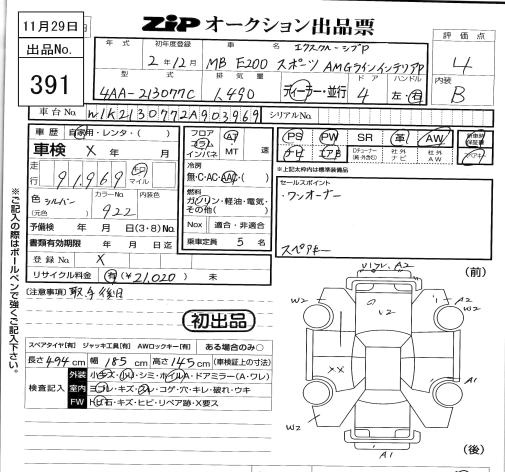 11月29日
ZiP オークション出品票
出品No.
391
年式
初年度登録
2年12月
車名
エクスクルーシブP
MB E200 スポーツ AMGラインインテリアP
評価点
4
内装
B
型式
4AA-213077C
排気量
1,490
ディーラー・並行
ドア
4
ハンドル
左・右
車台No.
W1K2130772A903969
シリアルNo.
車歴 自家用・レンタ・( )
車検 X 年 月
走行 91,969 km マイル
色 シルバー
(元色)
カラーNo.
922
内装色
予備検 年 月 日(3・8)No.
書類有効期限 年 月 日
登録No. X
リサイクル料金 有(¥21,020) 未
フロア
コラム
インパネ
AT
MT 速
冷房
無・C・AC・AAC( )
燃料
ガソリン・軽油・電気・
その他( )
Nox 適合・非適合
乗車定員 5 名
PS PW SR 革 AW
ナビ エアB
Dチューナー
社外ナビ
社外AW
※上記太枠内は標準装備品
セールスポイント
・ワンオーナー
スペアキー
(注意事項)
取手後日
初出品
スペアタイヤ[有] ジャッキ工具[有] AWロックキー[有] ある場合のみ○
長さ494cm 幅185cm 高さ145cm (車検証上の寸法)
検査記入
外装 小キズ・凹・シミ・ホイルA・ドアミラー(A・ワレ)
室内 ヨゴレ・キズ・スレ・コゲ・穴・キレ・破れ・ウキ
FW トビ石・キズ・ヒビ・リペア跡・X要ス
※ご記入の際はボールペンで強くご記入下さい。
(前)
A2
W2
1
A2
W2
12
XX
A1
W2
A1
(後)